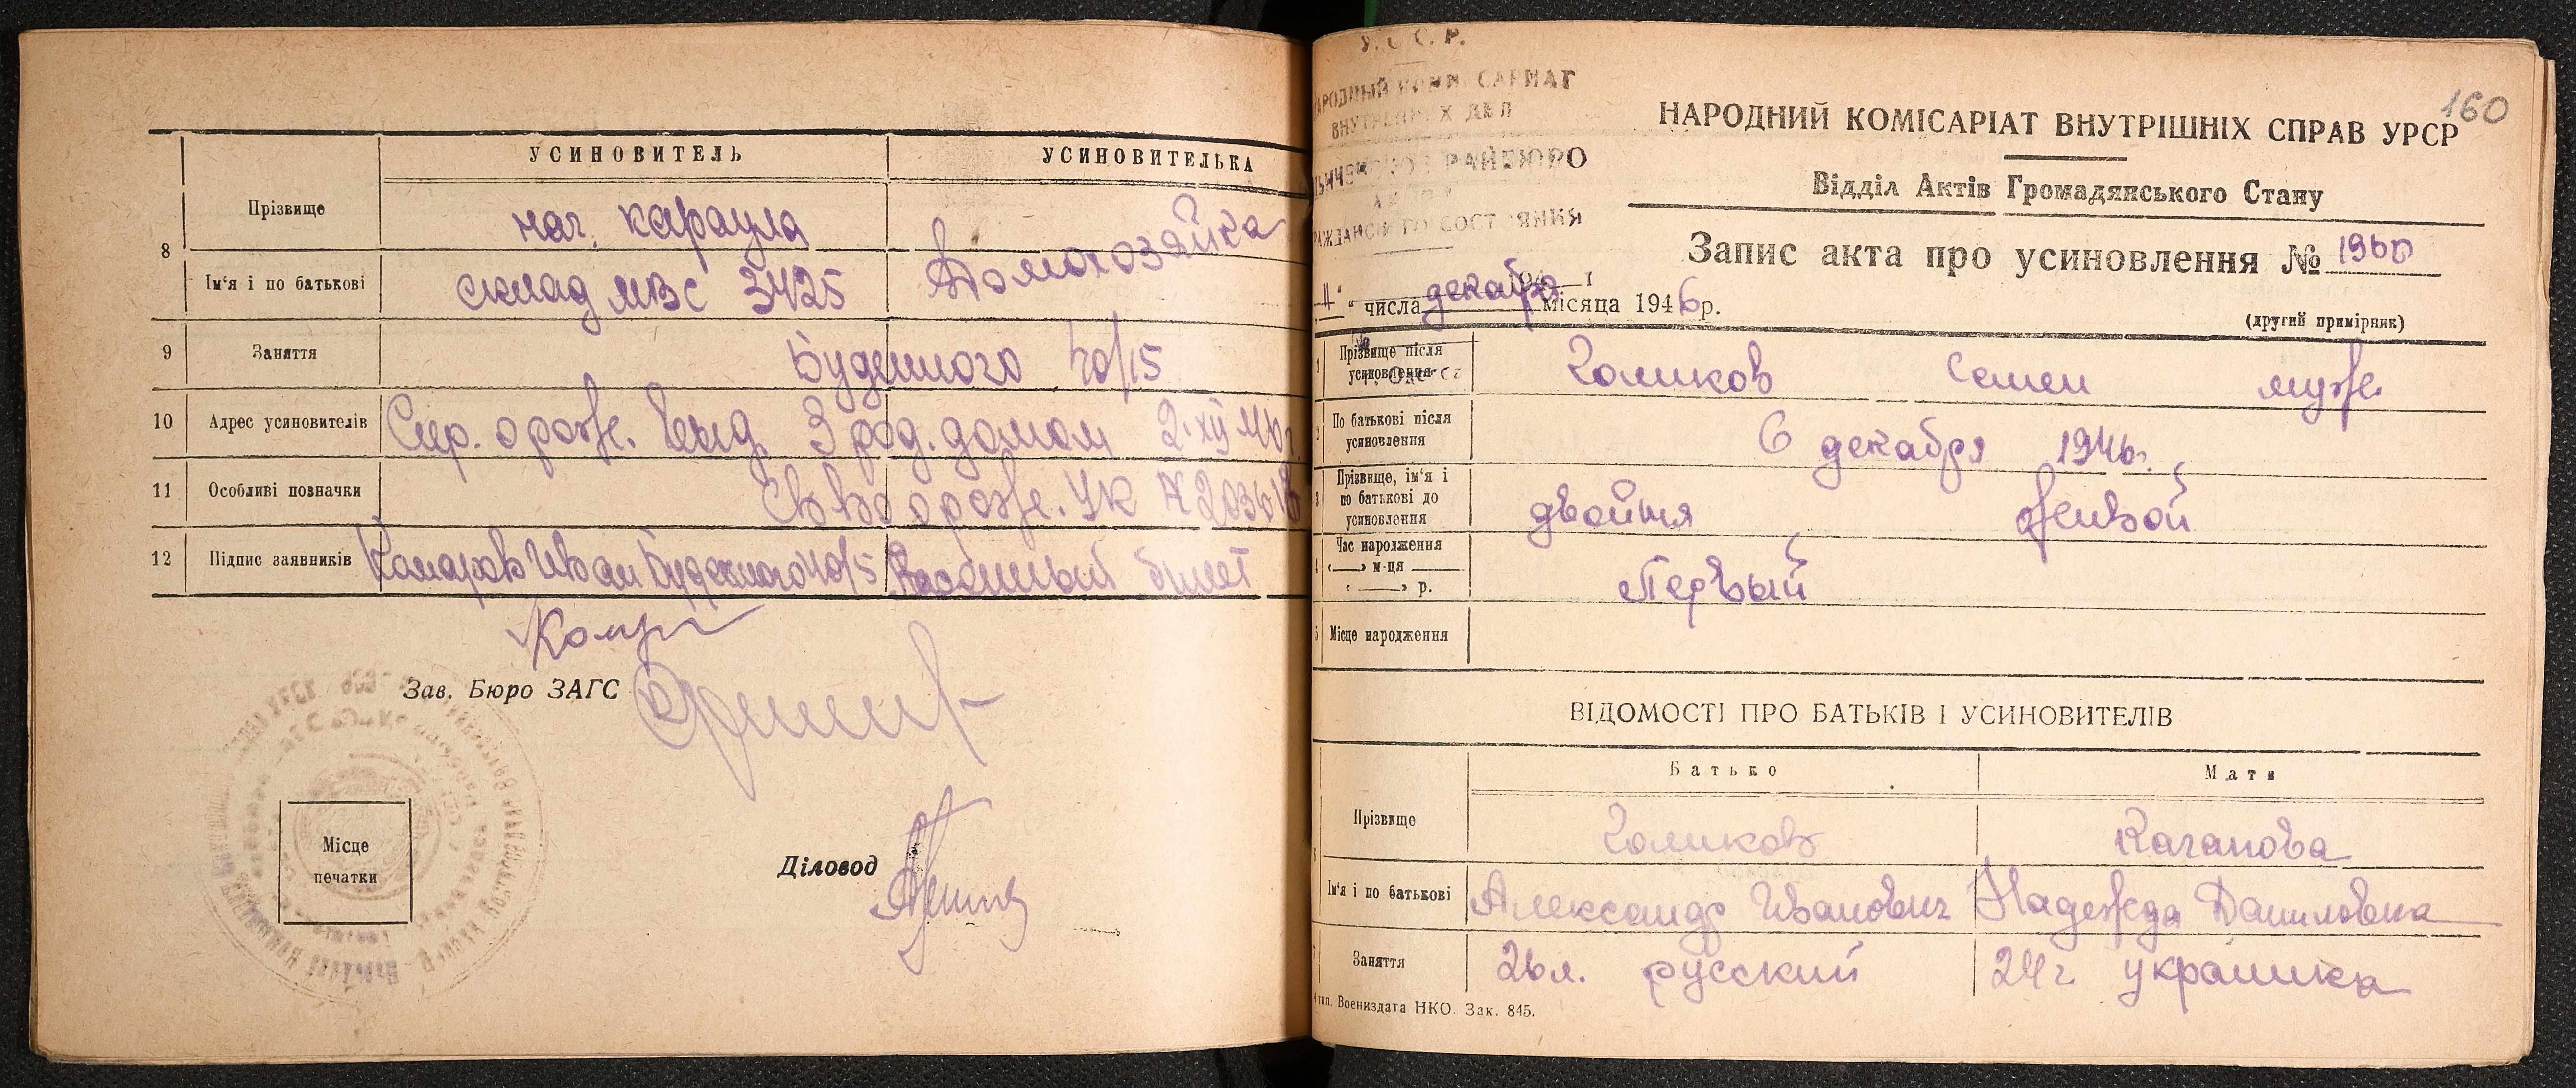 УСИНОВИТЕЛЬ
УСИНОВИТЕЛЬКА
8
Прізвище
нач. караула
Домохозяйка
Ім'я і по батькові
склад МВС 3425
9
Заняття
Буденного 40/15
10
Адрес усиновителів
Спр. о рожд. выд. 3 род. домом 2.XII 46 г.
11
Особливі позначки
Св во о рожд. УК № 203618
12
Підпис заявників
Комаров Иван Буденного 40/5
билет
Зав. Бюро ЗАГС
Місце
печатки
Діловод
У.С.С.Р.
НАРОДНЫЙ КОМИССАРИАТ
ВНУТРЕННИХ ДЕЛ
РАЙБЮРО
ГРАЖДАНСКОГО СОСТОЯНИЯ
160
НАРОДНИЙ КОМІСАРІАТ ВНУТРІШНІХ СПРАВ УРСР
Відділ Актів Громадянського Стану
Запис акта про усиновлення № 1960
11 " числа декабря місяца 1946 р.
(другий примірник)
1
Прізвище після
усиновлення
Голиков Семен муж.
2
По батькові після
усиновлення
6 декабря 1946г.
3
Прізвище, ім'я і
по батькові до
усиновлення
двойня живой
4
Час народження
«___» м-ця ____
«___» р.
Первый
5
Місце народження
ВІДОМОСТІ ПРО БАТЬКІВ І УСИНОВИТЕЛІВ
Батько
Мати
Прізвище
Голиков
Каганова
Ім'я і по батькові
Александр Иванович
Надежда Даниловна
Заняття
26 л. русский
24 г. украинка
тип. Воениздата НКО. Зак. 845.